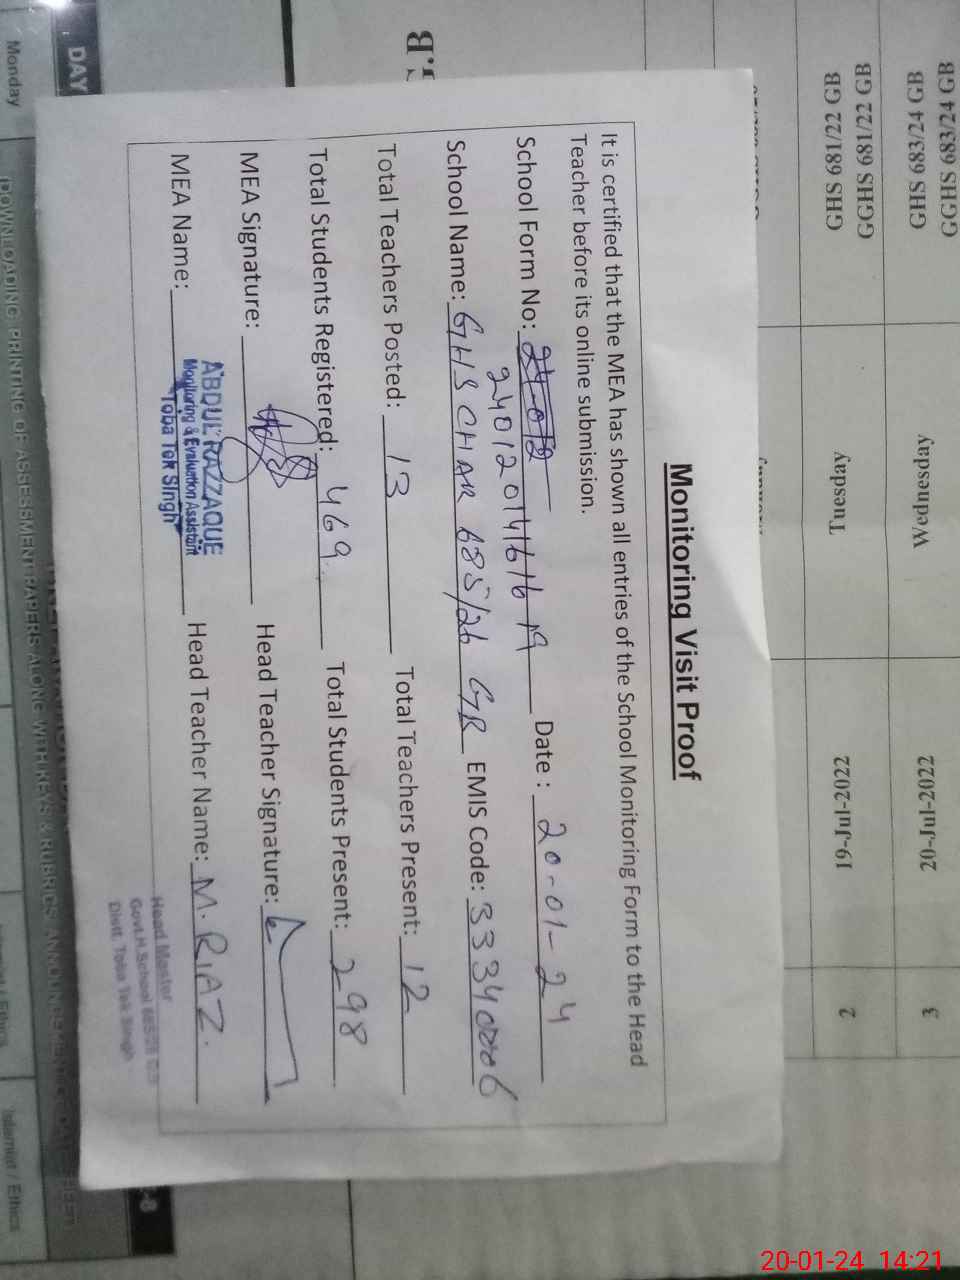 Monitoring Visit Proof
It is certified that the MEA has shown all entries of the School Monitoring Form to the Head
Teacher before its online submission.
School Form No: 24-012 Date : 20-01-24
24012014161619
School Name: GHS CHAK 685/26 GB EMIS Code: 33340006
Total Teachers Posted: 13 Total Teachers Present: 12
Total Students Registered: 469 Total Students Present: 298
MEA Signature: Head Teacher Signature:
MEA Name: Head Teacher Name: M. RIAZ.
ABDUL RAZZAQUE
Monitoring & Evaluation Assistant
Toba Tek Singh
Head Master
Govt.H.School
Distt. Toba Tek Singh
GGHS 683/24 GB
GHS 683/24 GB Wednesday 20-Jul-2022 3
GGHS 681/22 GB
GHS 681/22 GB Tuesday 19-Jul-2022 2
DAY
Monday
Islamiat / Ethics
20-01-24 14:21